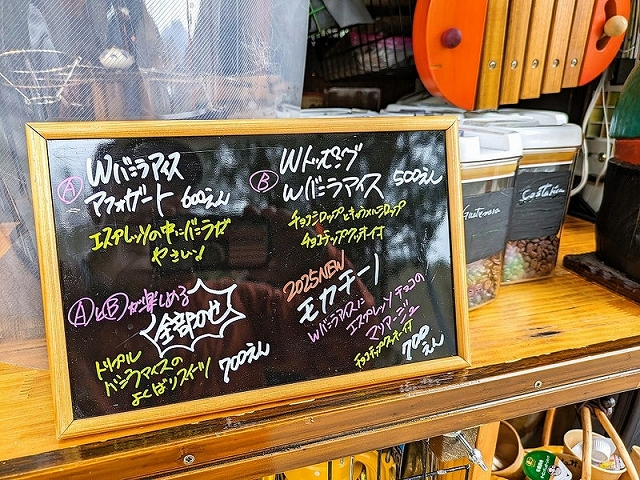 Ⓐ Wバニラアイス
アフォガート 600えん
エスプレッソの中にバニラが
Ⓑ Wトッピング
Wバニラアイス 500えん
チョコシロップとキャラメルシロップ
チョコチップクッキーイン
ⒶとⒷが楽しめる
全部のせ
トリプル
バニラアイスの
よくばりスイーツ 700えん
2025NEW
モカチーノ
Wバニラアイスに
エスプレッソとチョコの
マリアージュ
チョコチップクッキーイン
700えん
Guatemala
Costa Rica